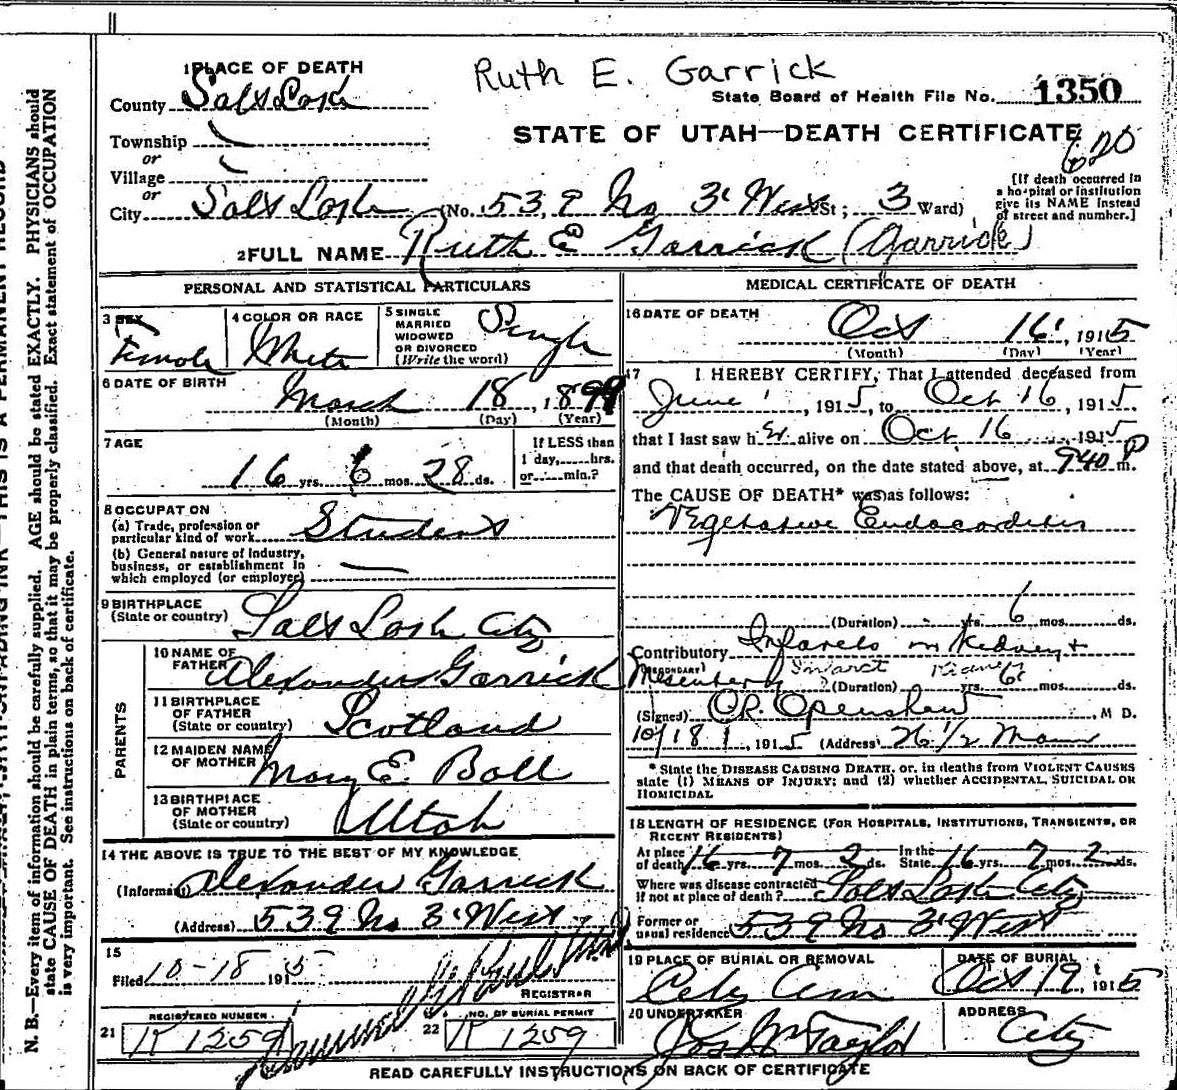 Ruth E. Garrick
1 PLACE OF DEATH
County Salt Lake
State Board of Health File No. 1350
Township
or
STATE OF UTAH—DEATH CERTIFICATE
620
Village
or
City Salt Lake (No. 539 No 3' West St; 3 Ward)
[If death occurred in a hospital or institution give its NAME instead of street and number.]
2 FULL NAME Ruth E Garrick (Garrick)
PERSONAL AND STATISTICAL PARTICULARS
3 SEX
Female
4 COLOR OR RACE
White
5 SINGLE
MARRIED
WIDOWED
OR DIVORCED
(Write the word)
Single
6 DATE OF BIRTH
March 18, 1899
(Month) (Day) (Year)
7 AGE
16 yrs. 6 mos. 28 ds.
If LESS than
1 day,......hrs.
or......min.?
8 OCCUPATION
(a) Trade, profession or
particular kind of work Student
(b) General nature of industry,
business, or establishment in
which employed (or employer)
9 BIRTHPLACE
(State or country) Salt Lake City
PARENTS
10 NAME OF
FATHER Alexander Garrick
11 BIRTHPLACE
OF FATHER
(State or country) Scotland
12 MAIDEN NAME
OF MOTHER Mary E. Ball
13 BIRTHPLACE
OF MOTHER
(State or country) Utah
14 THE ABOVE IS TRUE TO THE BEST OF MY KNOWLEDGE
(Informant) Alexander Garrick
(Address) 539 No 3' West
15
Filed 10-18 1915
REGISTRAR
REGISTERED NUMBER
21 K 1259
NO. OF BURIAL PERMIT
22 K 1259
MEDICAL CERTIFICATE OF DEATH
16 DATE OF DEATH
Oct 16, 1915
(Month) (Day) (Year)
17 I HEREBY CERTIFY, That I attended deceased from
June 1, 1915, to Oct 16, 1915.
that I last saw her alive on Oct 16 1915
and that death occurred, on the date stated above, at 940 P m.
The CAUSE OF DEATH* was as follows:
Vegetative Endocarditis
(Duration) yrs. 6 mos. ds.
Contributory Infarcts in Kidney +
(SECONDARY)
Mesentery Infarct Kidney
(Duration) yrs. 6 mos. ds.
(Signed) O.R. Openshaw, M D.
10/18 1, 1915 (Address) 26 1/2 Main
* State the DISEASE CAUSING DEATH, or, in deaths from VIOLENT CAUSES
state (1) MEANS OF INJURY; and (2) whether ACCIDENTAL, SUICIDAL OR
HOMICIDAL
18 LENGTH OF RESIDENCE (FOR HOSPITALS, INSTITUTIONS, TRANSIENTS, OR
RECENT RESIDENTS)
At place of death 16 yrs. 7 mos. 2 ds. In the State 16 yrs. 7 mos. 2 ds.
Where was disease contracted
if not at place of death? Salt Lake City
Former or
usual residence 539 No 3' West
19 PLACE OF BURIAL OR REMOVAL
City Cem
DATE OF BURIAL
Oct 19, 1915
20 UNDERTAKER
Jos Wm Taylor
ADDRESS
City
READ CAREFULLY INSTRUCTIONS ON BACK OF CERTIFICATE
N. B.—Every item of information should be carefully supplied. AGE should be stated EXACTLY. PHYSICIANS should
state CAUSE OF DEATH in plain terms, so that it may be properly classified. Exact statement of OCCUPATION
is very important. See instructions on back of certificate.
THIS IS A PERMANENT RECORD